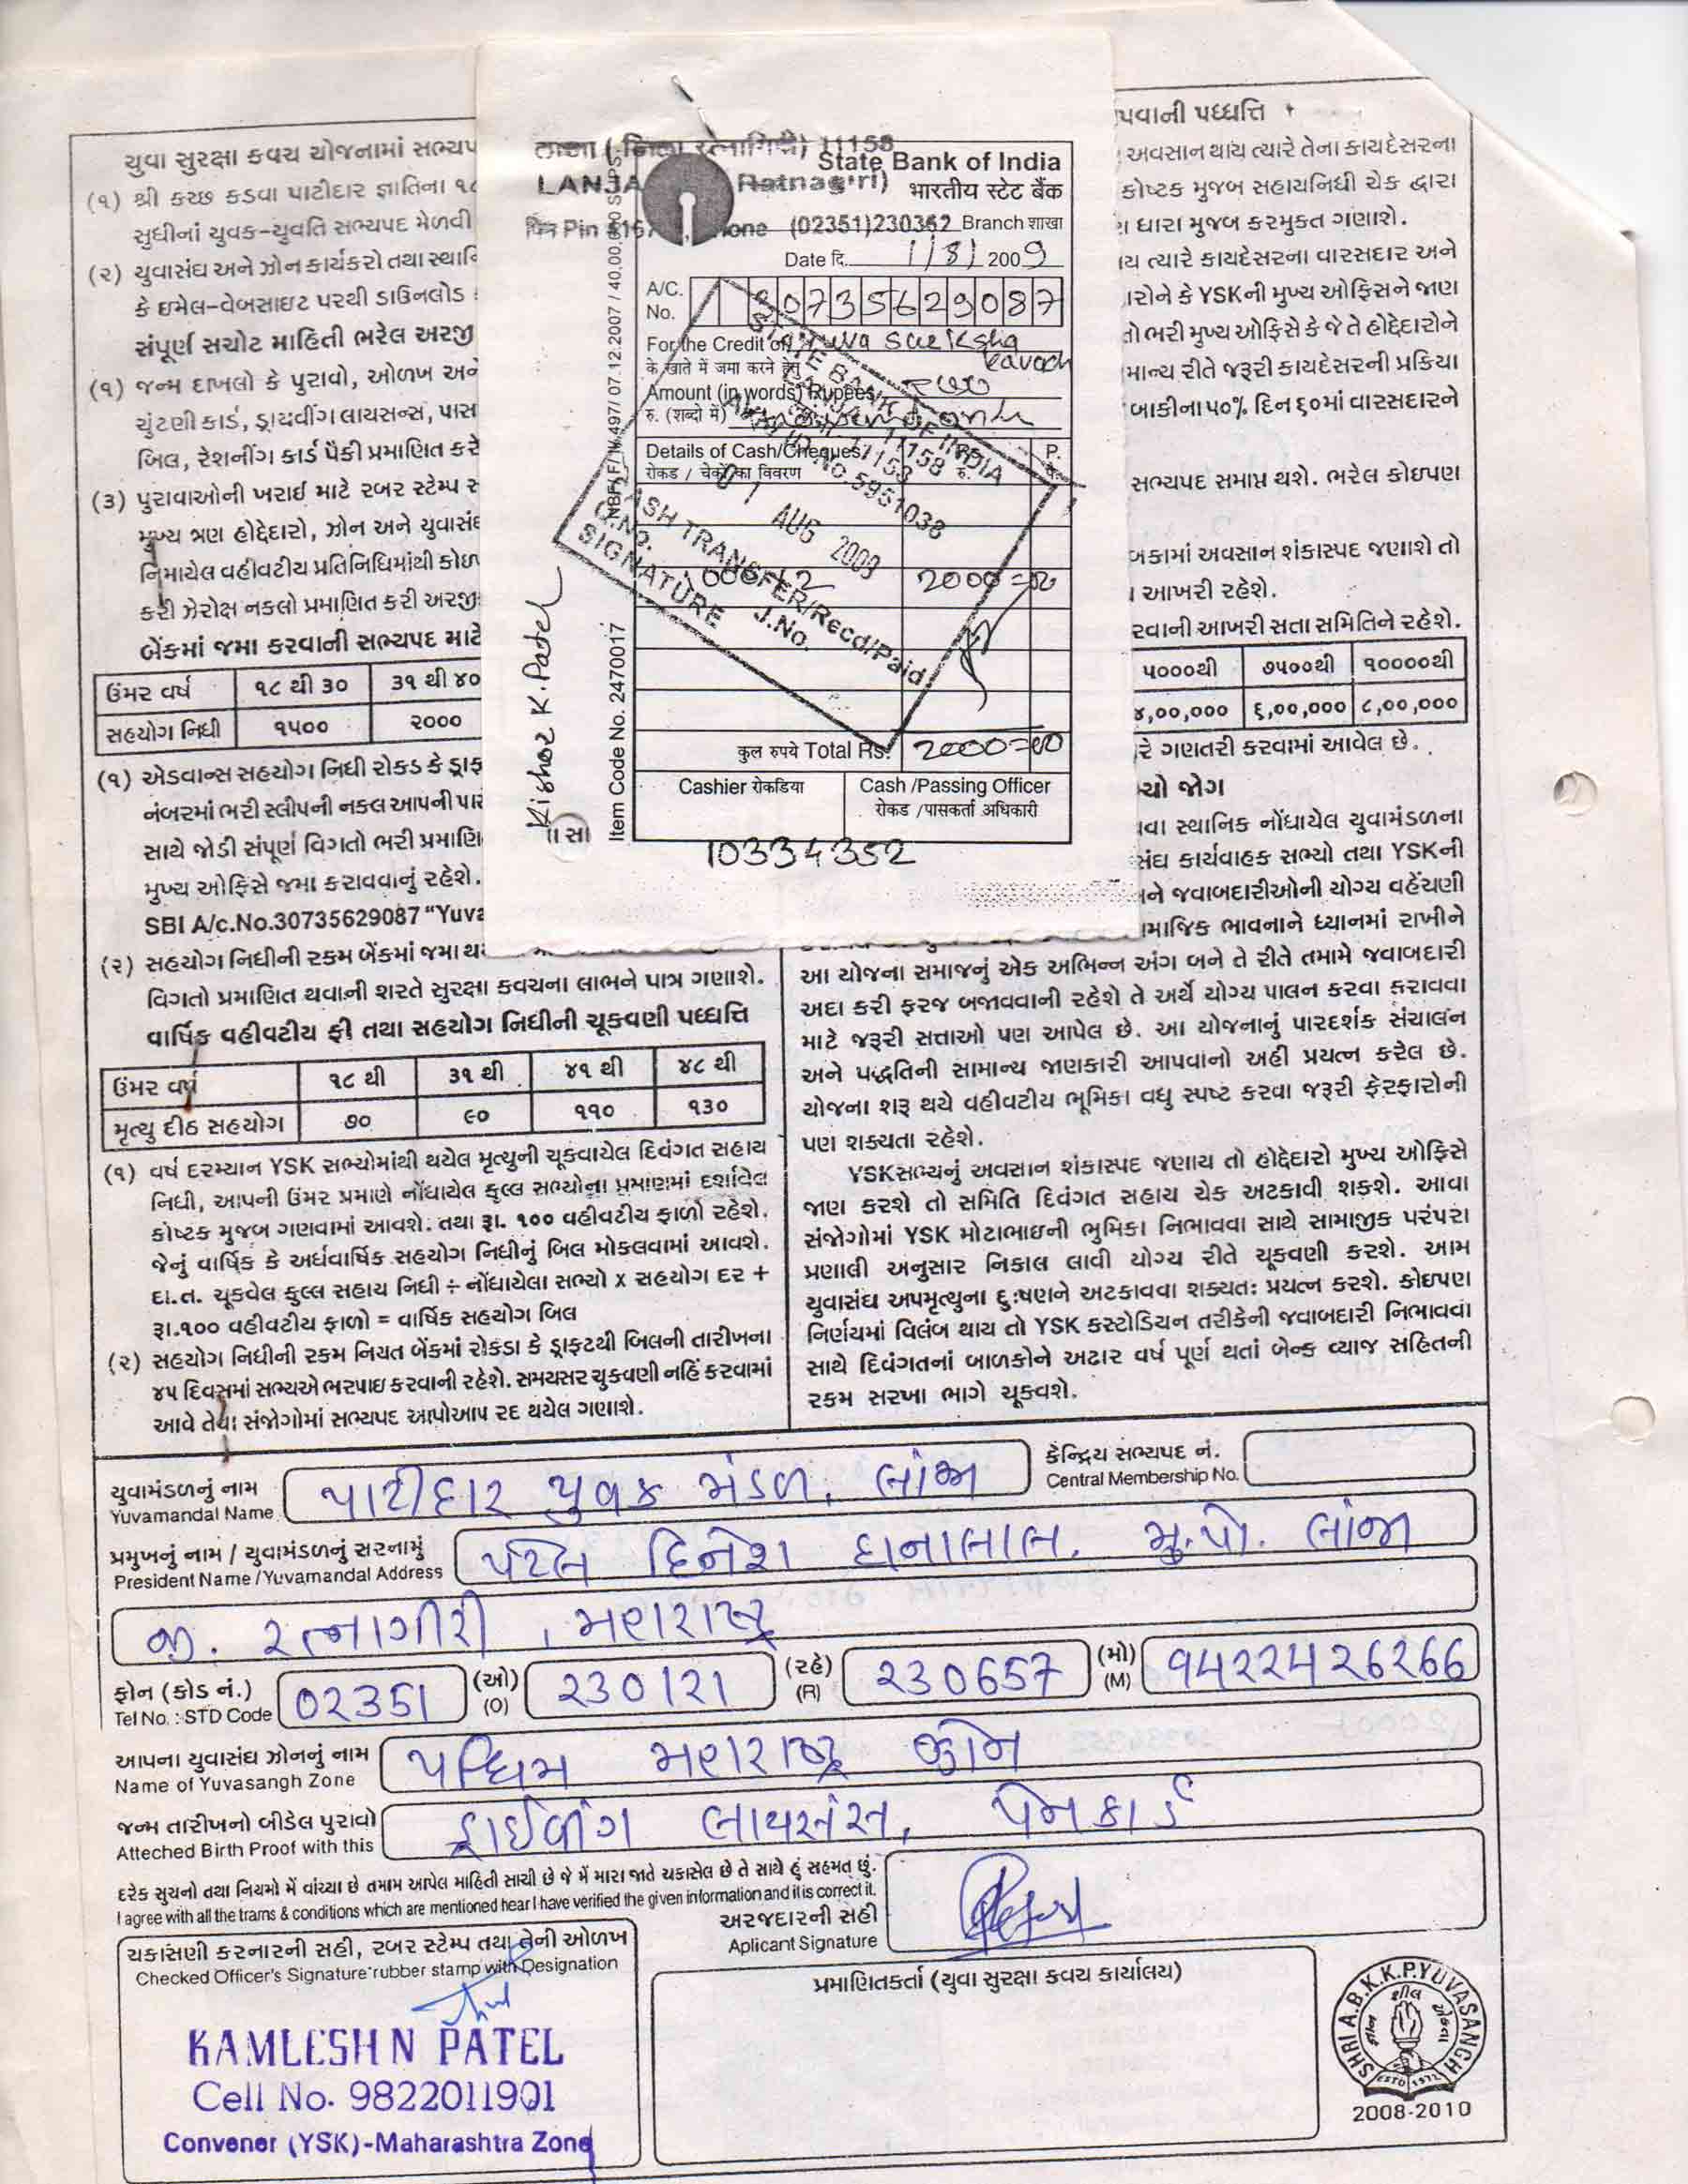 યુવા સુરક્ષા કવચ યોજનામાં સભ્યપ
(૧) શ્રી કચ્છ કડવા પાટીદાર જ્ઞાતિના ૧૮
સુધીનાં યુવક-યુવતિ સભ્યપદ મેળવી
(૨) યુવાસંઘ અને ઝોન કાર્યકરો તથા સ્થાનિ
કે ઇમેલ-વેબસાઇટ પરથી ડાઉનલોડ
સંપૂર્ણ સચોટ માહિતી ભરેલ અરજી
(૧) જન્મ દાખલો કે પુરાવો, ઓળખ અને
ચુંટણી કાર્ડ, ડ્રાયવીંગ લાયસન્સ, પાસ
બિલ, રેશનીંગ કાર્ડ પૈકી પ્રમાણિત કરે
(૩) પુરાવાઓની ખરાઈ માટે રબર સ્ટેમ્પ
મુખ્ય ત્રણ હોદ્દેદારો, ઝોન અને યુવાસંઘ
નિમાયેલ વહીવટીય પ્રતિનિધિમાંથી કોઇ
કરી ઝેરોક્ષ નકલો પ્રમાણિત કરી અરજી
બેંકમાં જમા કરવાની સભ્યપદ માટે
ઉંમર વર્ષ ૧૮ થી ૩૦ ૩૧ થી ૪૦
સહયોગ નિધી ૧૫૦૦ ૨૦૦૦
(૧) એડવાન્સ સહયોગ નિધી રોકડ કે ડ્રાફ
નંબરમાં ભરી સ્લીપની નકલ આપની પાર
સાથે જોડી સંપૂર્ણ વિગતો ભરી પ્રમાણિ
મુખ્ય ઓફિસે જમા કરાવવાનું રહેશે.
SBI A/c.No.30735629087 “Yuva
(૨) સહયોગ નિધીની રકમ બેંકમાં જમા થ
વિગતો પ્રમાણિત થવાની શરતે સુરક્ષા કવચના લાભને પાત્ર ગણાશે.
વાર્ષિક વહીવટીય ફી તથા સહયોગ નિધીની ચૂકવણી પધ્ધતિ
ઉંમર વર્ષ ૧૮ થી ૩૧ થી ૪૧ થી ૪૮ થી
મૃત્યુ દીઠ સહયોગ ૭૦ ૯૦ ૧૧૦ ૧૩૦
(૧) વર્ષ દરમ્યાન YSK સભ્યોમાંથી થયેલ મૃત્યુની ચૂકવાયેલ દિવંગત સહાય
નિધી, આપની ઉંમર પ્રમાણે નોંધાયેલ કુલ્લ સભ્યોના પ્રમાણમાં દર્શાવેલ
કોષ્ટક મુજબ ગણવામાં આવશે. તથા રૂા. ૧૦૦ વહીવટીય ફાળો રહેશે.
જેનું વાર્ષિક કે અર્ધવાર્ષિક સહયોગ નિધીનું બિલ મોકલવામાં આવશે.
દા.ત. ચૂકવેલ કુલ્લ સહાય નિધી ÷ નોંધાયેલા સભ્યો x સહયોગ દર +
રૂા.૧૦૦ વહીવટીય ફાળો = વાર્ષિક સહયોગ બિલ
(૨) સહયોગ નિધીની રકમ નિયત બેંકમાં રોકડા કે ડ્રાફટથી બિલની તારીખના
૪૫ દિવસમાં સભ્યએ ભરપાઇ કરવાની રહેશે. સમયસર ચુકવણી નહિં કરવામાં
આવે તેવા સંજોગોમાં સભ્યપદ આપોઆપ રદ થયેલ ગણાશે.
लान्जा (जिला रत्नागिरी) 11158
LANJA Ratnagiri)
Pin Phone (02351)230362
State Bank of India
भारतीय स्टेट बैंक
Branch शाखा
Date दि. 1/8/2009
A/C. No. 30735629087
For the Credit of Yuva Sureksha Kavach
के खाते में जमा करने हेतु
Amount (in words) Rupees
रु. (शब्दो में)
Details of Cash/Cheques Rs. P.
रोकड / चेकों का विवरण रु.
STATE BANK OF INDIA
11158
01 AUG 2009
CASH TRANSFER/Recd/Paid
SIGNATURE J.No.
2000=00
कुल रुपये Total Rs. 2000=00
Cashier रोकडिया
Cash /Passing Officer
रोकड /पासकर्ता अधिकारी
10334352
Item Code No. 2470017
Kishor K. Patel
પવાની પધ્ધતિ
અવસાન થાય ત્યારે તેના કાયદેસરના
કોષ્ટક મુજબ સહાયનિધી ચેક દ્વારા
ધારા મુજબ કરમુકત ગણાશે.
ય ત્યારે કાયદેસરના વારસદાર અને
ારોને કે YSKની મુખ્ય ઓફિસને જાણ
તો ભરી મુખ્ય ઓફિસે કે જે તે હોદ્દેદારોને
માન્ય રીતે જરૂરી કાયદેસરની પ્રકિયા
બાકીના ૫૦% દિન ૬૦માં વારસદારને
સભ્યપદ સમાપ્ત થશે. ભરેલ કોઇપણ
બકામાં અવસાન શંકાસ્પદ જણાશે તો
આખરી રહેશે.
રવાની આખરી સતા સમિતિને રહેશે.
૫૦૦૦થી ૭૫૦૦થી ૧૦૦૦૦થી
૪,૦૦,૦૦૦ ૬,૦૦,૦૦૦ ૮,૦૦,૦૦૦
રે ગણતરી કરવામાં આવેલ છે.
ચો જોગ
વા સ્થાનિક નોંધાયેલ યુવામંડળના
સંઘ કાર્યવાહક સભ્યો તથા YSKની
ને જવાબદારીઓની યોગ્ય વહેંચણી
માજિક ભાવનાને ધ્યાનમાં રાખીને
આ યોજના સમાજનું એક અભિન્ન અંગ બને તે રીતે તમામે જવાબદારી
અદા કરી ફરજ બજાવવાની રહેશે તે અર્થે યોગ્ય પાલન કરવા કરાવવા
માટે જરૂરી સત્તાઓ પણ આપેલ છે. આ યોજનાનું પારદર્શક સંચાલન
અને પધ્ધતિની સામાન્ય જાણકારી આપવાનો અહી પ્રયત્ન કરેલ છે.
યોજના શરૂ થયે વહીવટીય ભૂમિકા વધુ સ્પષ્ટ કરવા જરૂરી ફેરફારોની
પણ શક્યતા રહેશે.
YSKસભ્યનું અવસાન શંકાસ્પદ જણાય તો હોદ્દેદારો મુખ્ય ઓફિસે
જાણ કરશે તો સમિતિ દિવંગત સહાય ચેક અટકાવી શકશે. આવા
સંજોગોમાં YSK મોટાભાઇની ભુમિકા નિભાવવા સાથે સામાજીક પરંપરા
પ્રણાલી અનુસાર નિકાલ લાવી યોગ્ય રીતે ચૂકવણી કરશે. આમ
યુવાસંઘ અપમૃત્યુના દુઃષણને અટકાવવા શક્યતઃ પ્રયત્ન કરશે. કોઇપણ
નિર્ણયમાં વિલંબ થાય તો YSK કસ્ટોડિયન તરીકેની જવાબદારી નિભાવવા
સાથે દિવંગતનાં બાળકોને અઢાર વર્ષ પૂર્ણ થતાં બેન્ક વ્યાજ સહિતની
રકમ સરખા ભાગે ચૂકવશે.
યુવામંડળનું નામ પાટીદાર યુવક મંડળ, લાંજા
Yuvamandal Name
કેન્દ્રિય સભ્યપદ નં.
Central Membership No.
પ્રમુખનું નામ / યુવામંડળનું સરનામું પટેલ દિનેશ ધનાલાલ. મુ.પો. લાંજા
President Name / Yuvamandal Address
જી. રત્નાગીરી, મહારાષ્ટ્ર
ફોન (કોડ નં.) 02351 (ઓ) 230121 (રહે) 230657 (મો) 9422426266
Tel No. : STD Code (O) (R) (M)
આપના યુવાસંઘ ઝોનનું નામ પશ્ચિમ મહારાષ્ટ્ર ઝોન
Name of Yuvasangh Zone
જન્મ તારીખનો બીડેલ પુરાવો ડ્રાઈવીંગ લાયસંસ, પેનકાર્ડ
Atteched Birth Proof with this
દરેક સુચનો તથા નિયમો મેં વાંચ્યા છે તમામ આપેલ માહિતી સાચી છે જે મેં મારા જાતે ચકાસેલ છે તે સાથે હું સહમત છું.
I agree with all the trams & conditions which are mentioned hear I have verified the given information and it is correct it.
અરજદારની સહી
Aplicant Signature
ચકાસણી કરનારની સહી, રબર સ્ટેમ્પ તથા તેની ઓળખ
Checked Officer's Signature rubber stamp with Designation
KAMLESH N PATEL
Cell No. 9822011901
Convener (YSK)-Maharashtra Zone
પ્રમાણિતકર્તા (યુવા સુરક્ષા કવચ કાર્યાલય)
SHRI A.B.K.K.P. YUVASANGH
ESTD 1972
2008-2010